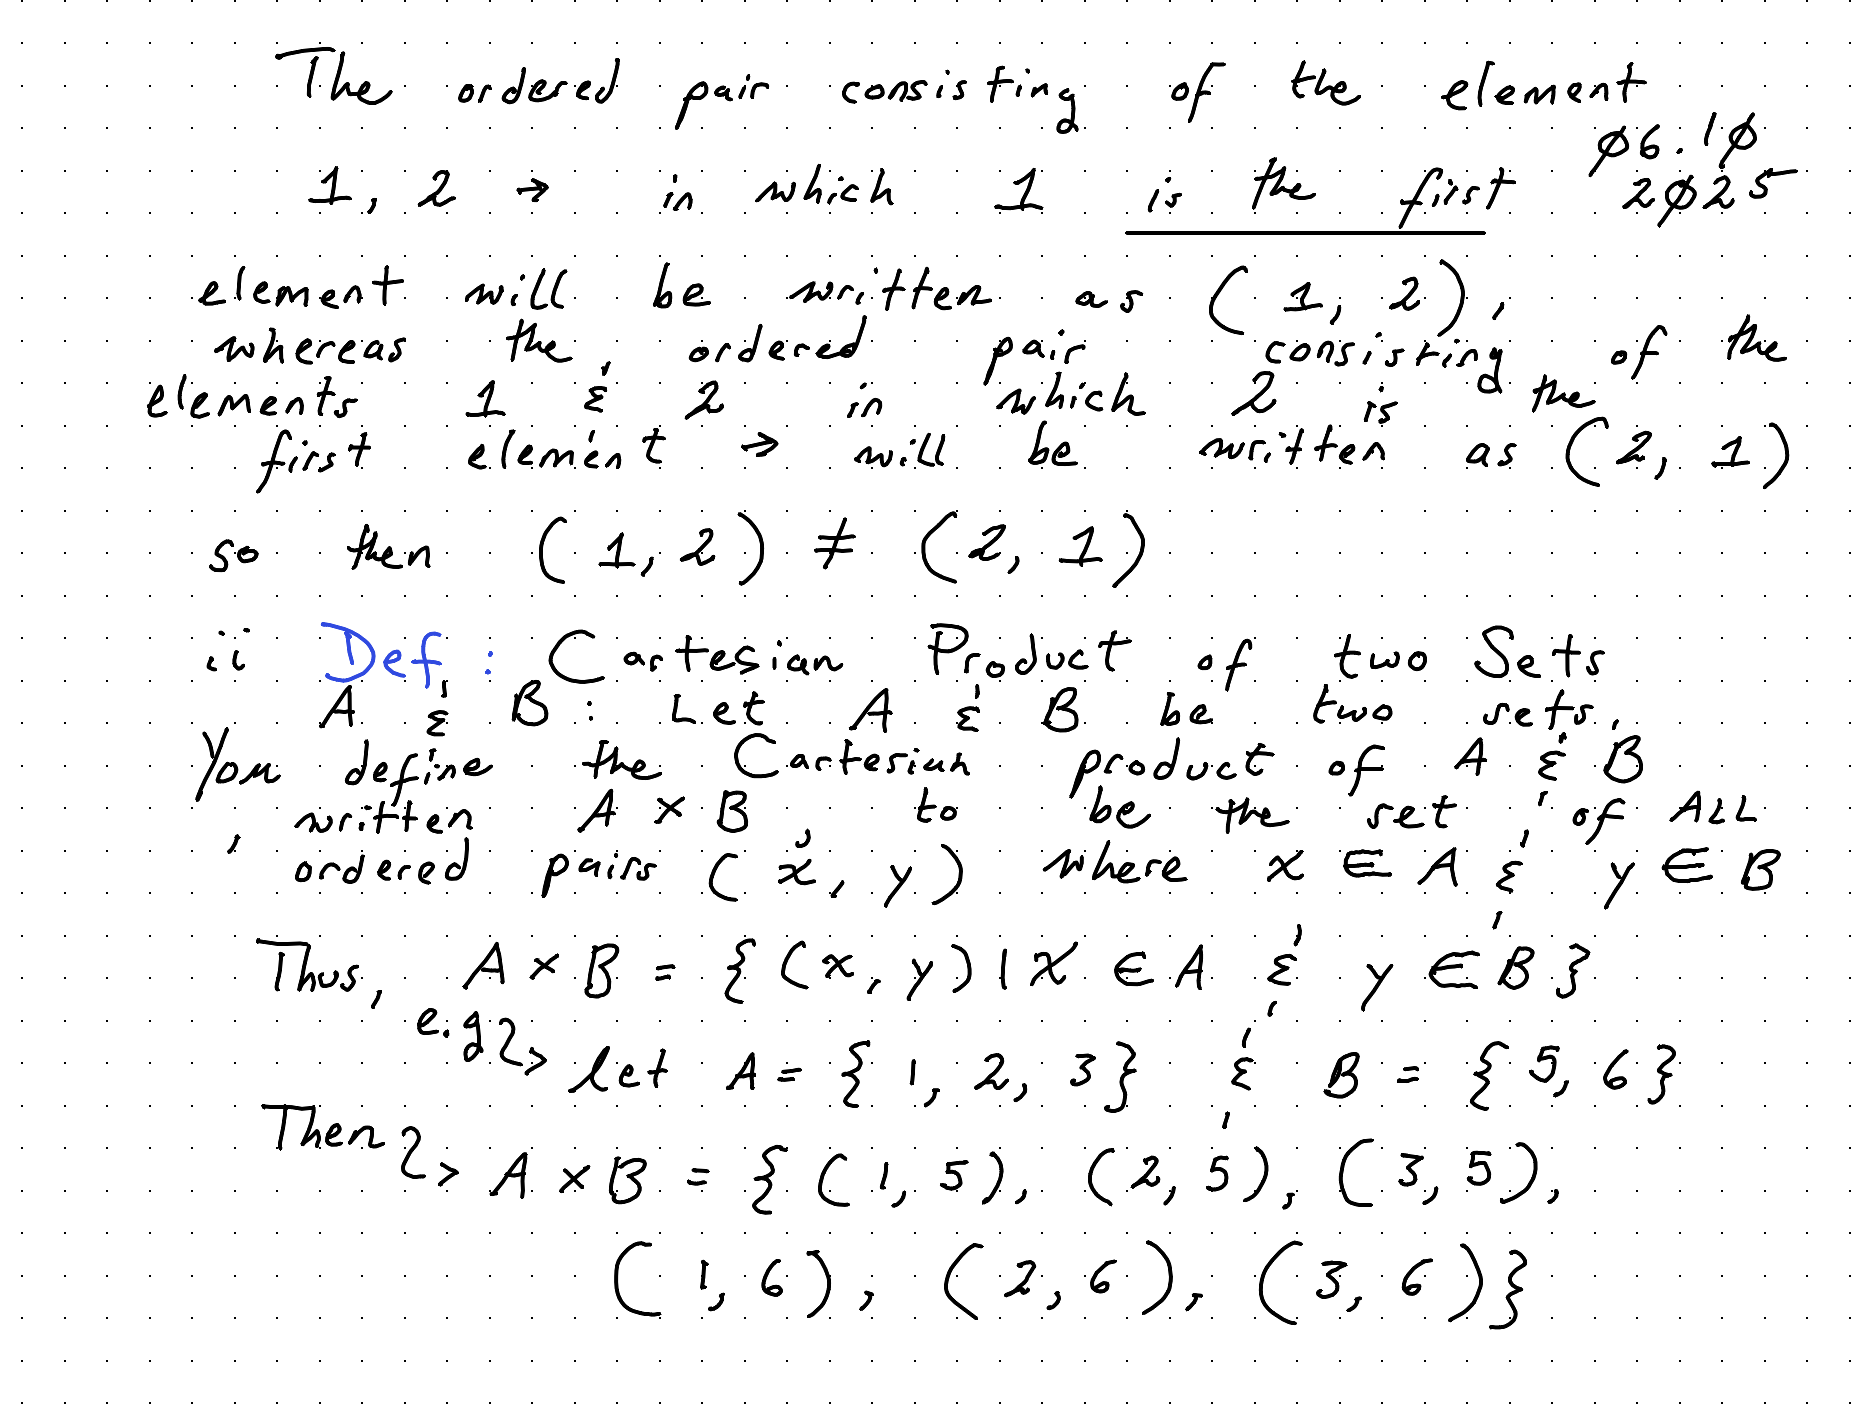 The ordered pair consisting of the element
06.10
1, 2 → in which 1 is the first
2025
element will be written as (1, 2),
whereas the ordered pair consisting of the
elements 1 & 2 in which 2 is the
first element → will be written as (2, 1)
so then (1, 2) ≠ (2, 1)
ii Def: Cartesian Product of two Sets
A & B: Let A & B be two sets.
You define the Cartesian product of A & B
, written A × B, to be the set of ALL
ordered pairs (x, y) where x ∈ A & y ∈ B
Thus, A × B = {(x, y) | x ∈ A & y ∈ B}
e.g. let A = {1, 2, 3} & B = {5, 6}
Then A × B = {(1, 5), (2, 5), (3, 5),
(1, 6), (2, 6), (3, 6)}